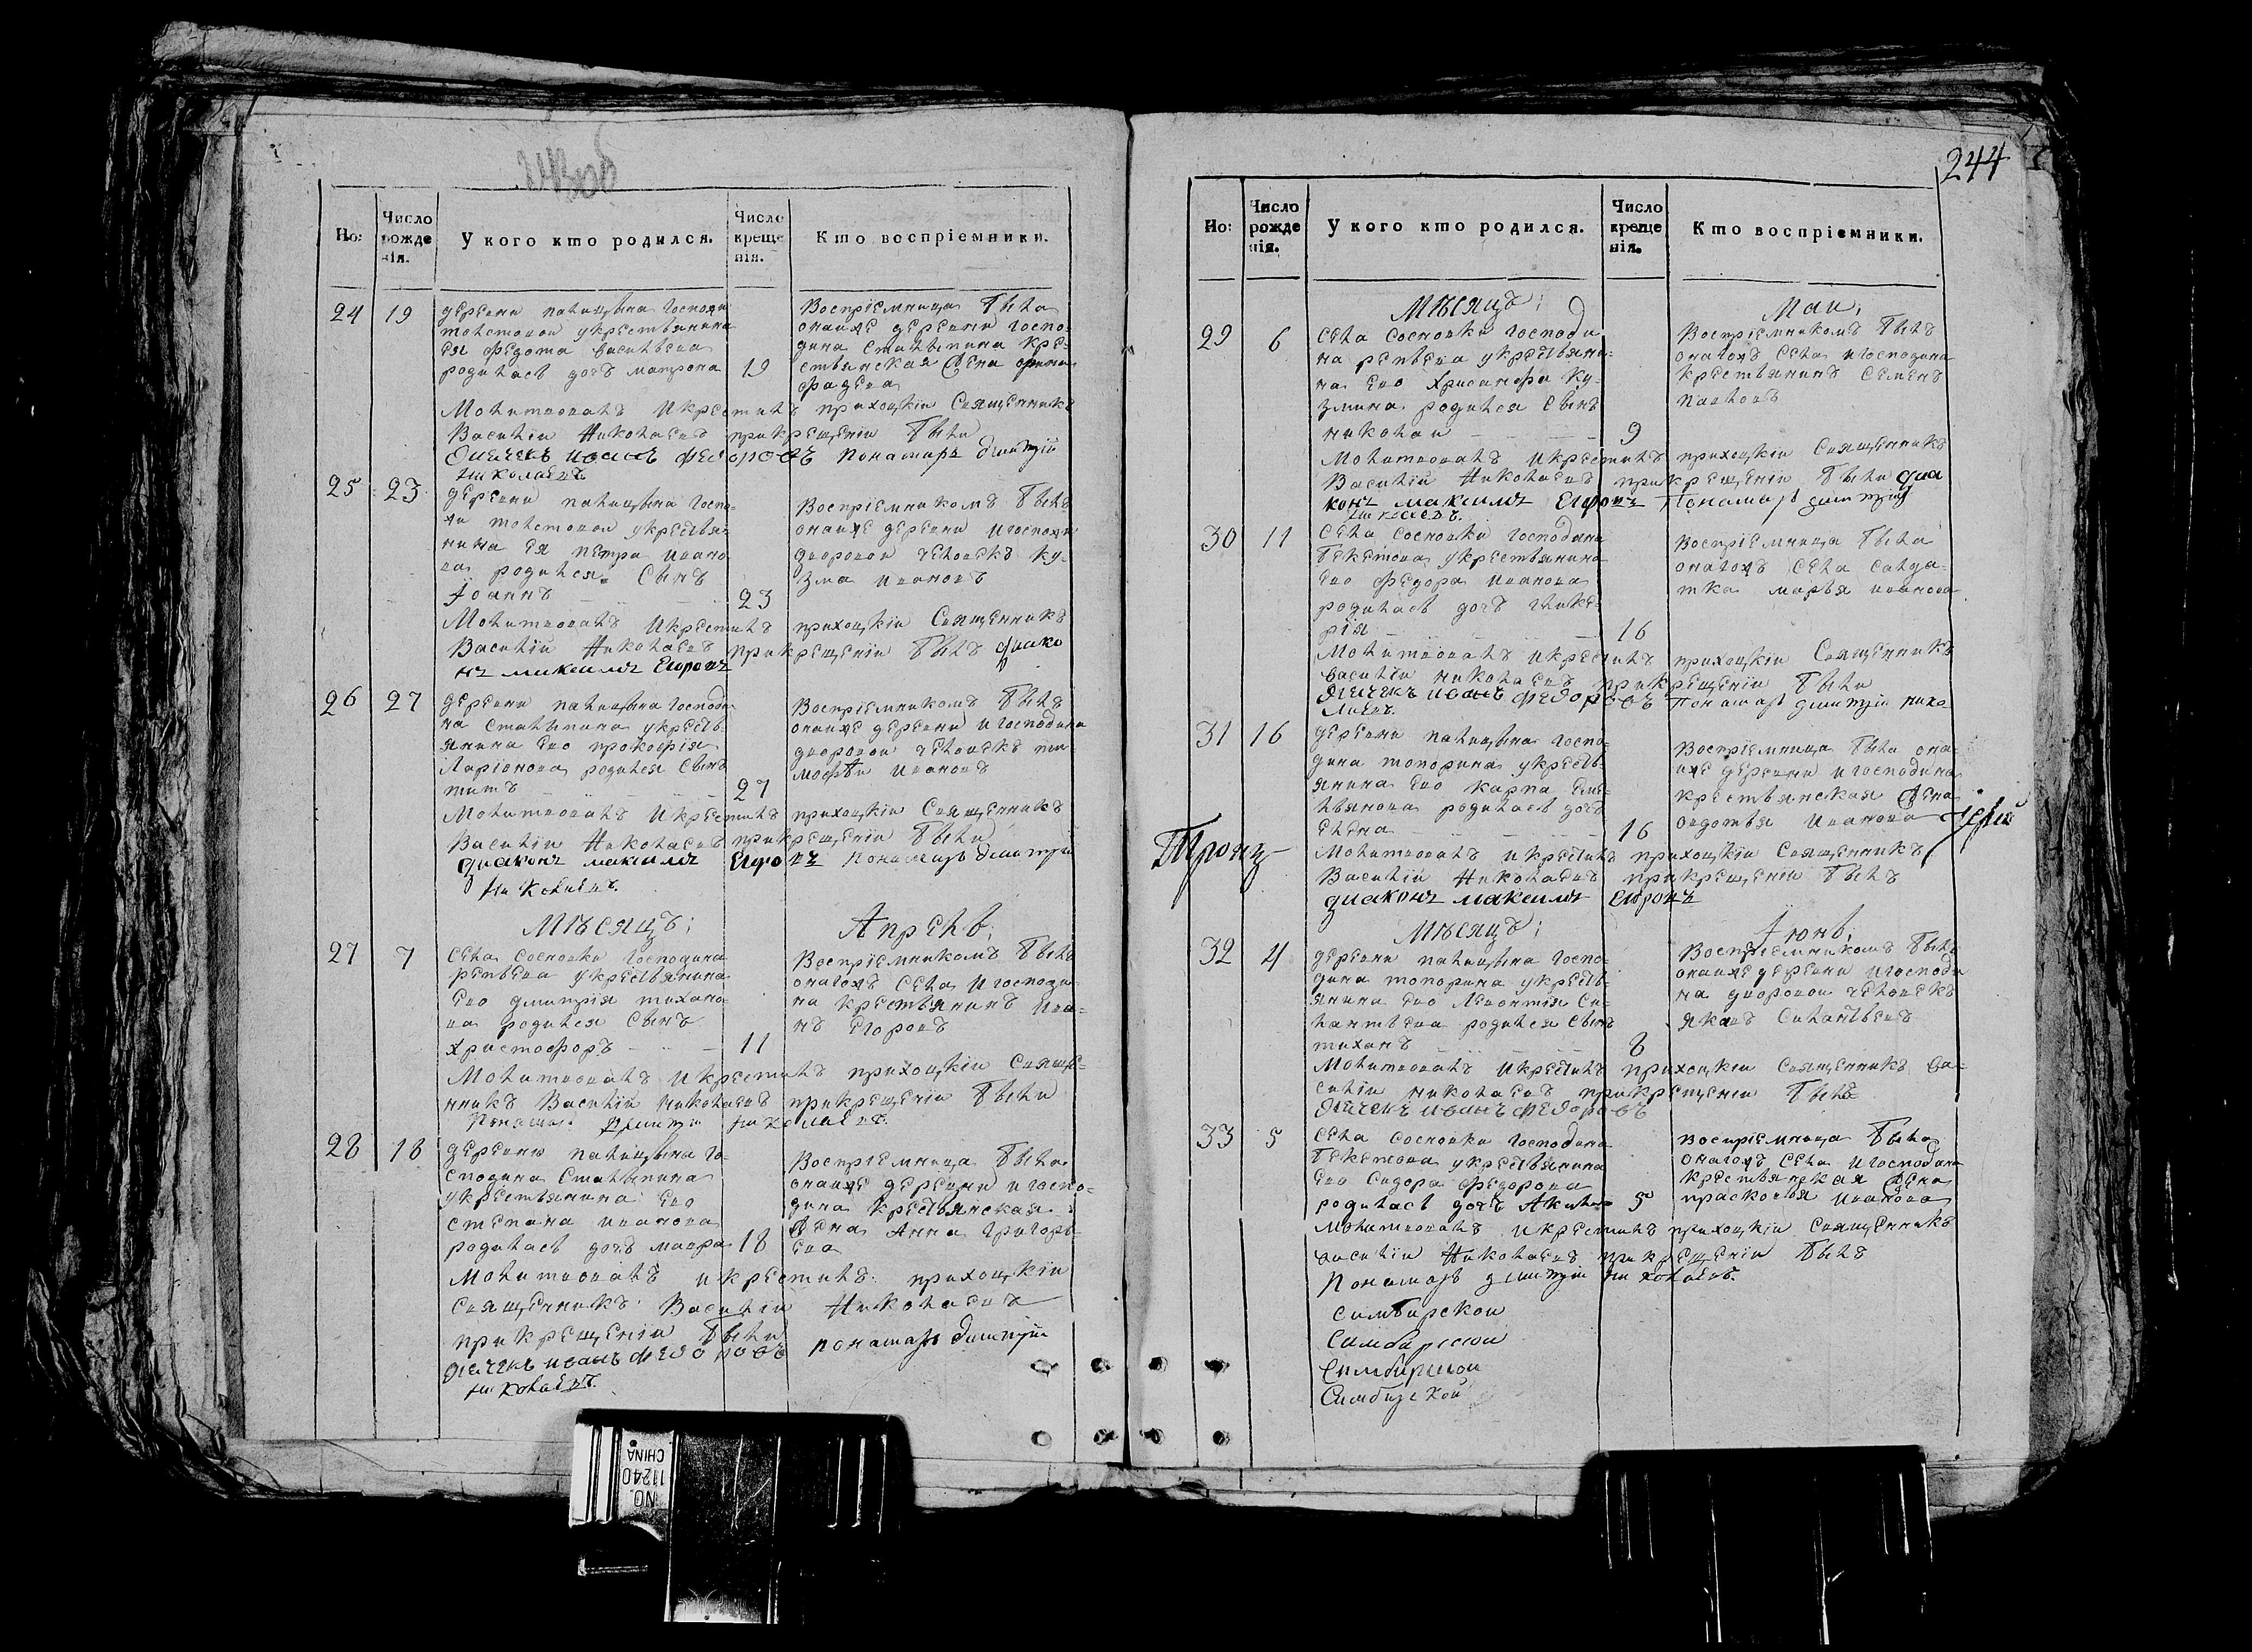 Но:
Число рожде нія.
У кого кто родился.
Число креще нія.
Кто воспріемники.
24
19
деревни палицына Госпожи
толстовой укрестьянина
ея федота васильева
родилась дочь матрона
19
Воспріемница была
онаиже деревни госпо-
дина Сталыпина кре-
стьянская жена
фадева
Молитвовалъ Икрестилъ приходскіи Священникъ
Василіи Николаевъ прикрещеніи были
Дьячекъ иванъ Федоровъ Пономарь дмитрій
Николаевъ
25
23
деревни палицына госпо-
жи толстовой укрестья-
нина ея петра ивано
ва родился Сынъ
Іоаннъ
23
Воспріемникомъ былъ
онаиже деревни игоспожи
дворовои человекъ ку-
зма ивановъ
Молитвовалъ Икрестилъ приходскіи Священникъ
Василіи Николаевъ прикрещеніи былъ диако
нъ максимъ Егоровъ
26
27
деревни палицына господи
на Сталыпина укресть-
янина ево прокофія
Ларіонова родился Сынъ
титъ
27
Воспріемникомъ былъ
онаиже деревни игосподина
дворовои человекъ ти
мофѣи ивановъ
Молитвовалъ Икрестилъ приходскіи Священникъ
Василіи Николаевъ прикрещеніи были
диаконъ максимъ Егоровъ Пономарь дмитрій
Николаевъ
Мѣсяцъ:
Апрель:
27
7
Села Сосновки Господина
репьева укрестьянина
ево дмитрія тихано-
ва родился Сынъ
христофоръ
11
Воспріемникомъ былъ
онагожъ Села Игосподи-
на крестьянинъ Ива-
нъ Егоровъ
Молитвовалъ Икрестилъ приходскіи Свяще-
нникъ Василіи Николаевъ прикрещеніи были
Пономарь Дмитрій Николаевъ
28
18
деревни палицына го-
сподина Сталыпина
укрестьянина ево
степана иванова
родилась дочь мавра
18
Воспріемница была
онаиже деревни игоспо-
дина крестьянская
жена Анна Григорь-
ева
Молитвовалъ икрестилъ приходскіи
Священникъ Василіи Николаевъ
прикрещеніи были пономарь дмитріи
Дьячекъ иванъ Федоровъ
Николаевъ
244
Но:
Число рожде нія.
У кого кто родился.
Число креще нія.
Кто воспріемники.
Мѣсяцъ:
Маи:
29
6
Села Сосновки господи
на репьева укрестьяни-
на ево Хрисанфа Ку-
змина родился Сынъ
николаи
9
Воспріемникомъ былъ
онагожъ Села игосподина
крестьянинъ Семенъ
павловъ
Молитвовалъ Икрестилъ приходскіи Священникъ
Василіи Николаевъ прикрещеніи были диа
конъ максимъ Егоровъ Пономарь дмитрій
Николаевъ
30
11
Села Сосновки господина
бекетова укрестьянина
ево Федора иванова
родилась дочь Глике-
рія
16
Воспріемница была
онагожъ Села салда-
тка марья иванова
Молитвовалъ икрестилъ приходскіи Священникъ
василіи николаевъ прикрещеніи были
Дьячекъ иванъ Федоровъ Пономарь дмитріи нико
лаевъ
31
16
деревни палицына госпо-
дина топорина укресть-
янина ево карпа еме-
льянова родилась дочь
елена
16
Воспріемница была она-
иже деревни игосподина
крестьянская жена
авдотья иванова
Молитвовалъ икрестилъ приходскіи Священникъ
Василіи Николаевъ прикрещеніи былъ
диаконъ максимъ Егоровъ
Мѣсяцъ:
Іюнь:
32
4
деревни палицына госпо-
дина топорина укресть-
янина ево Леонтія Си-
лантьева родился Сынъ
тиханъ
8
Воспріемникомъ былъ
онаиже деревни игосподи
на дворовои человекъ
Яковъ Силантьевъ
Молитвовалъ Икрестилъ приходскіи Священникъ ва-
силіи николаевъ прикрещеніи былъ
Дьячекъ иванъ Федоровъ
33
5
Села Сосновки Господина
бекетова укрестьянина
ево Сидора Федорова
родилась дочь Акилина
5
Воспріемница была
онагожъ Села Игосподина
крестьянская жена
прасковья иванова
Молитвовалъ икрестилъ приходскіи Священникъ
василіи Николаевъ прикрещеніи былъ
Пономарь дмитріи Николаевъ
Симбирскои
Симбирскои
Симбирскои
Симбирской
NO. 11240
CHINA